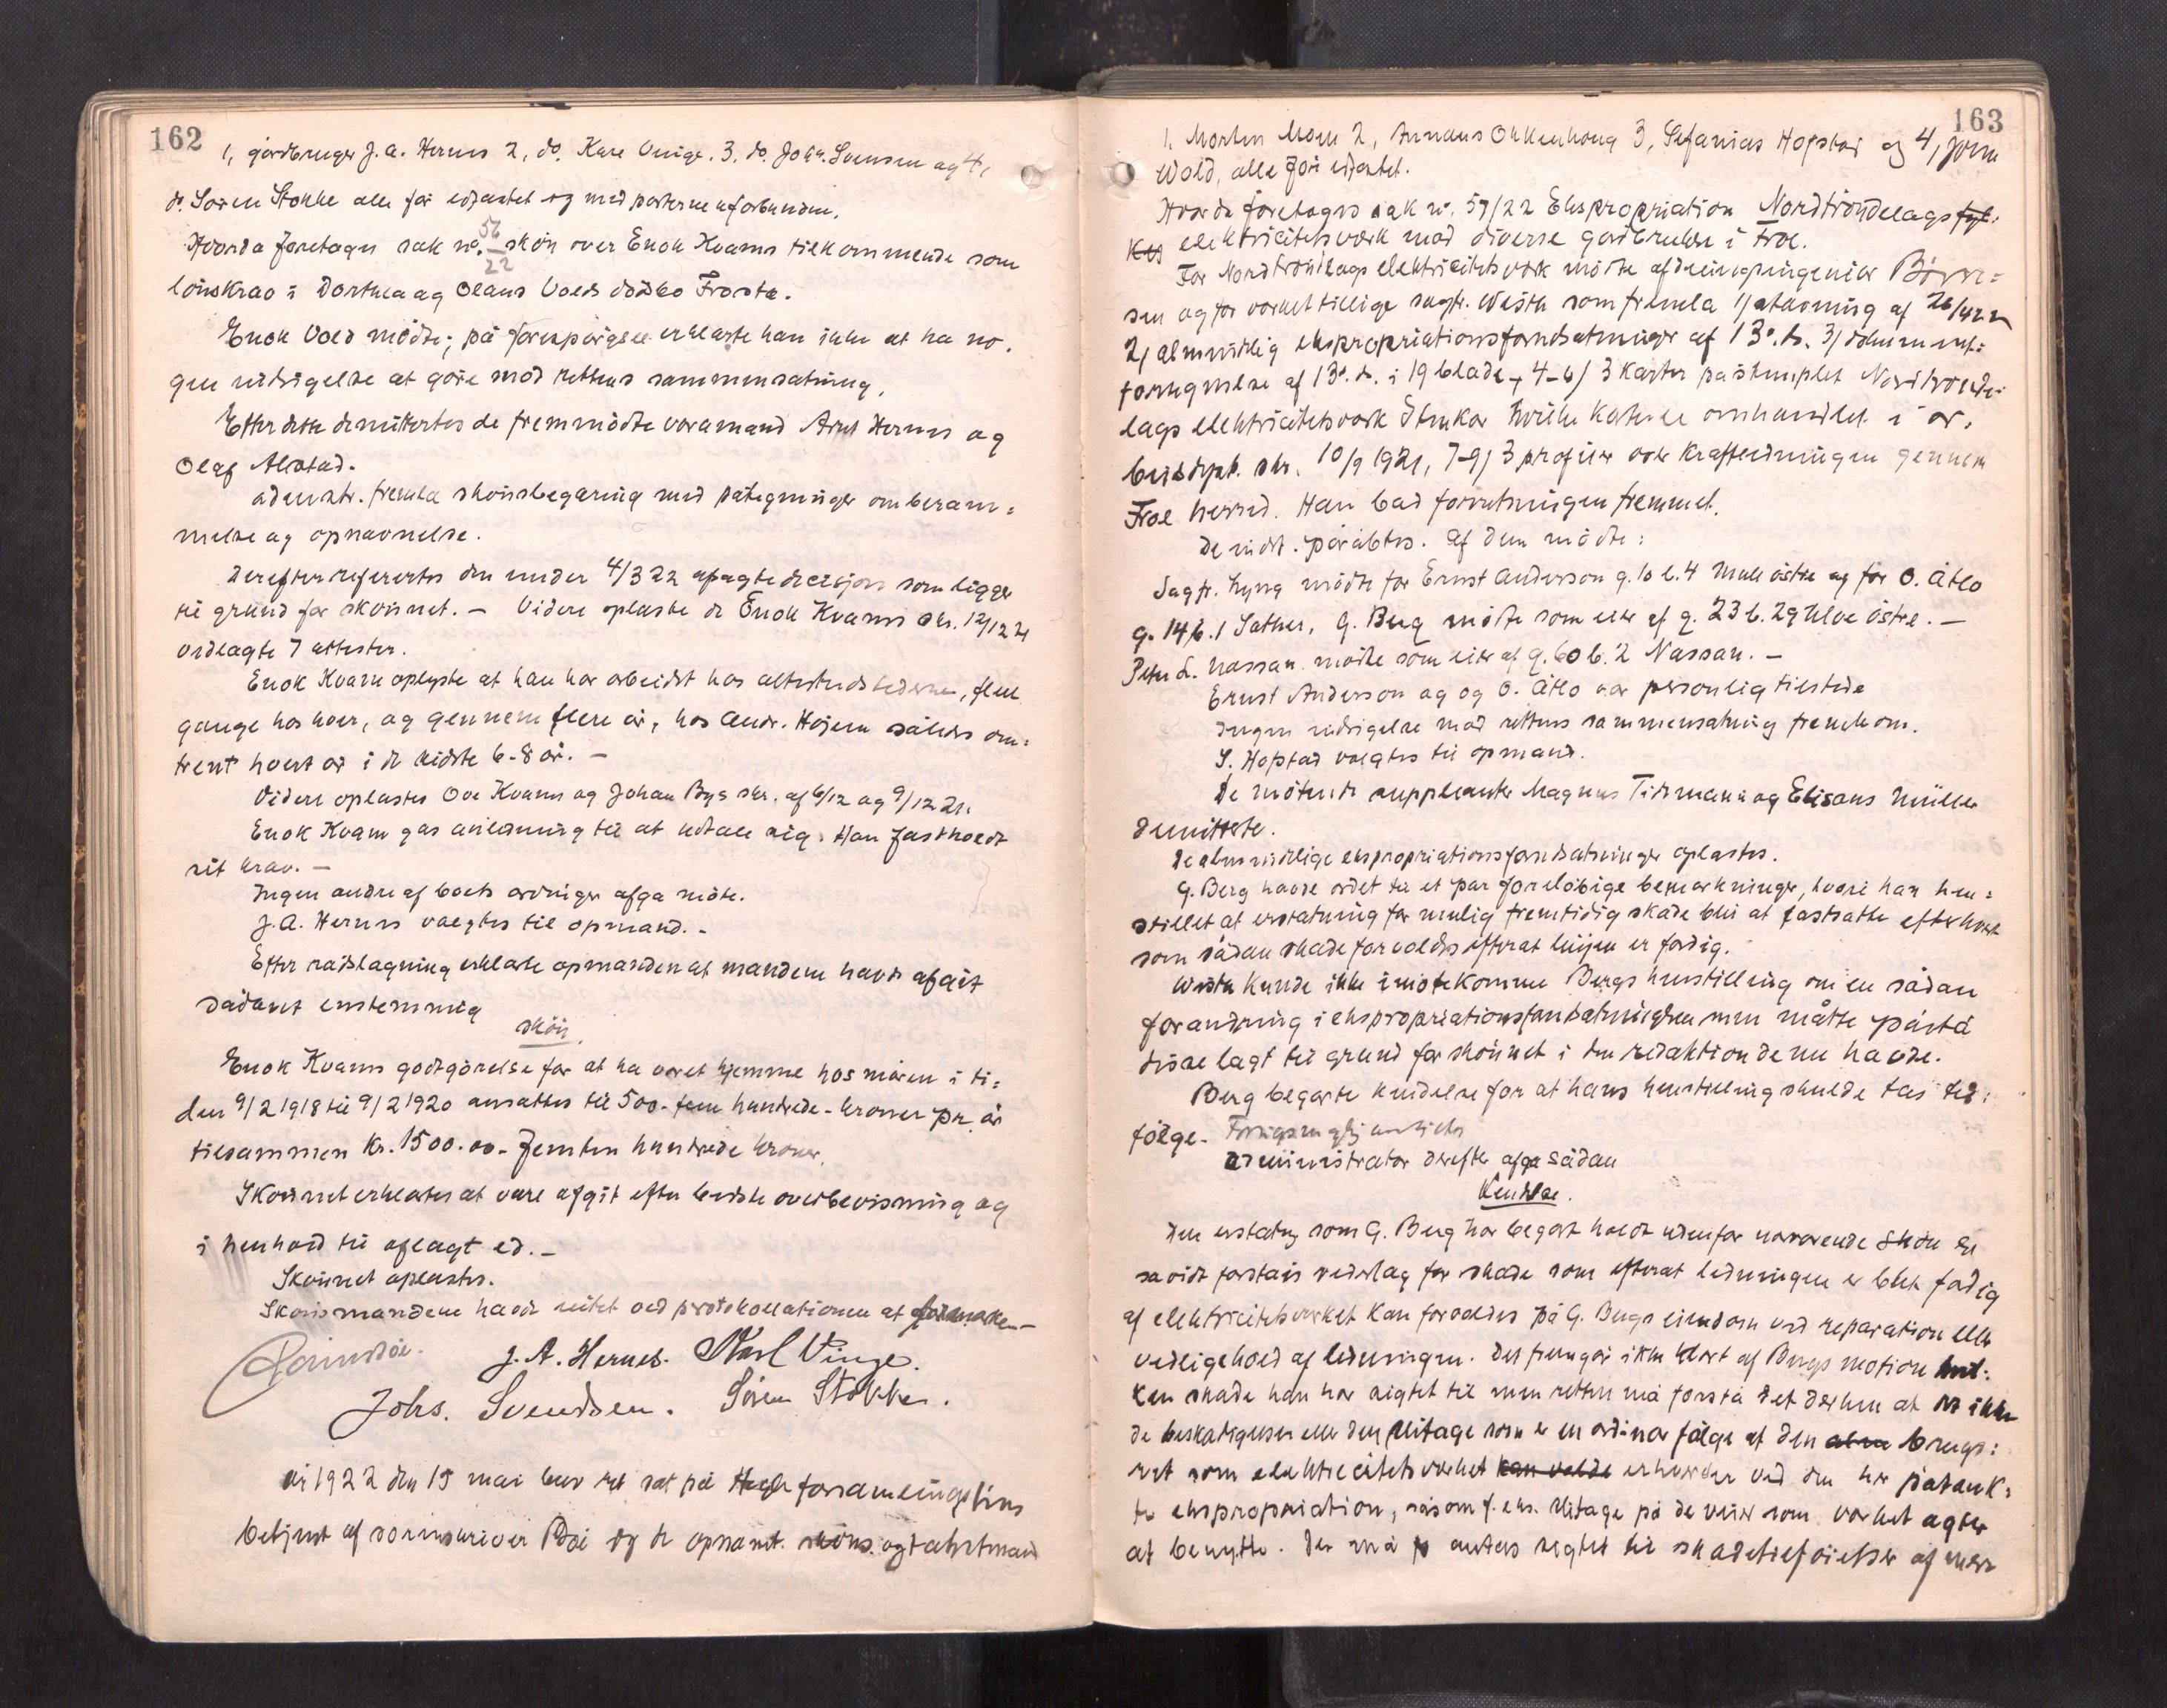 162
1, gårdbruger J. A. Hernes 2, do. Kare Vinge. 3. do. Johs. Svensen og 4,
do. Sören Stokke alle för edfæstet og med parterne uforbundne.
Hvorda foretages sak no. 56/22 skjön over Enok Kvams tilkommende som
lönskrav i Dorthea og Olaus Volds dödsbo Frosta.
Enok Vold mödte; på forespörgsel erklærte han ikke at ha no-
gen indsigelse at göre mod rettens sammensætning.
Efter dette demittertes de fremmödte varamænd Arnt Hernes og
Olaf Alstad.
Adminstr. fremla skönsbegæring med påtegninger om beram=
melse og opnævnelse.
Derefter refertes den under 4/3 22 afsagte decisjon som ligger
til grund for skönnet. – Videre oplæste de Enok Kvams skr. 12/12 21
vedlagte 7 attester.
Enok Kvam oplyste at han har arbeidet hos attestutstederne, flere
gange hos hver, og gennem flere år, hos Andr. Höjem således om=
trent hvert år i de sidste 6-8 år. –
Videre oplæstes Ove Kvams og Johan Bys skr. af 6/12 og 9/12 21.
Enok Kvam gas anledning til at uttale sig. Han fastholdt
sit krav. –
Ingen andre af boets arvinger afga möte.
J. A. Hernes valgtes til opmand. –
Efter rådslagning erklærte opmanden at mændene havde afgit
sådant enstemmig
skön.
Enok Kvams godtgörelse for at ha været hjemme hos moren i ti=
den 9/2 1918 til 9/2 1920 ansættes til 500 - fem hundrede - kroner pr. år
tilsammen kr. 1500.00 - femten hundrede kroner.
Skönnet erklærtes at være afgit efter bedste overbevisning og
i henhold til aflagt ed. –
Skönnet oplæstes.
Skönsmændene havde intet ved protokollationen at bemærke –
J. A. Hernes. Karl Vinge.
Johs. Svendsen. Sören Stokke.
År 1922 den 15 mai blev ret sat på forsamlingshus
betjent af sorenskriver og de opnævnt. sköns- og takstmænd
163
1, Morten 2, 3, Sefanias Hopstad og 4, Jörn
Wold, alle för edfæstet.
Hvorda foretages sak nr. 57/22 Ekspropriation Nordtröndelags fyl-
kes elektricitetsværk mod diverse gårdbrukere i Frol.
For Nordtröndelags elektricitetsværk mödte afdelingsingeniör
sen og for værket tillige sagf. som fremla 1) stævning af 26/4 22
2) almindelig ekspropriationsforudsætninger af 13. ds. 3) dokument-
fortegnelse af 13. ds. i 19 blade, 4-6) 3 karter påstemplet Nordtrönde-
lags elektricitetsværk Stenkær hvilke karter omhandlet i ar-
beidsdept. skr. 10/9 1921, 7-9) 3 profiler over kraftledningen gennem
Frol herred. Han bad forretningen fremmet.
De indst. påråbtes. Af dem mödte:
Sagf. Lyng mödte for Ernst Anderson g. 10 b. 4 Mule östre og for O. Åtlo
g. 14 b. 1 Sæther. G. Berg mödte som eier af g. 23 b. 29 östre. –
Peter L. Nassan mödte som eier af g. 60 b. 2 Nassan. –
Ernst Anderson og og O. Åtlo var personlig tilstede
Ingen indsigelse mod rettens sammensætning fremkom.
S. Hopstad valgtes til opmand.
De mötende suppleanter Magnus Tidemann og Elisæus Müller
demitterte.
De almindelige ekspropriationsforudsætninger oplæstes.
G. Berg havde ordet til et par foreløbige bemærkninger, hvori han hen=
stillet at erstatning for mulig fremtidig skade blir at fastsætte efterhvert
som sådan skade forvoldes efterat linjen er færdig.
kunde ikke imötekomme Bergs henstilling om en sådan
forandring i ekspropriationsforudsætningene men måtte påstå
disse lagt til grund for skönnet i den redaktion de nu havde.
Berg begærte kendelse for at hans henstilling skulde tas til=
fölge.
Administrator derefter afga sådan
Kendelse.
Den erstatng som G. Berg har begært holdt utenfor nærværende skön er
såvidt forståes vederlag for skade som efterat ledningen er blet færdig
af elektricitetsverket kan forvoldes på G. Bergs eiendom ved reparation eller
vedligehold af ledningen. Det fremgår ikke klart af Bergs motion hvil-
ken skade han har sigtet til men retten må forstå det derhen at det ikke
de beskadigelser eller den slitage som er en ordinær fölge af den alm brugs=
ret som elektricitetsværket kan volde erhverder ved den her påtænk=
te ekspropriation, såsom f. eks. slitage på de veier som værket agter
at benytte. Der må antas sigtet til skadetilföielser af mer